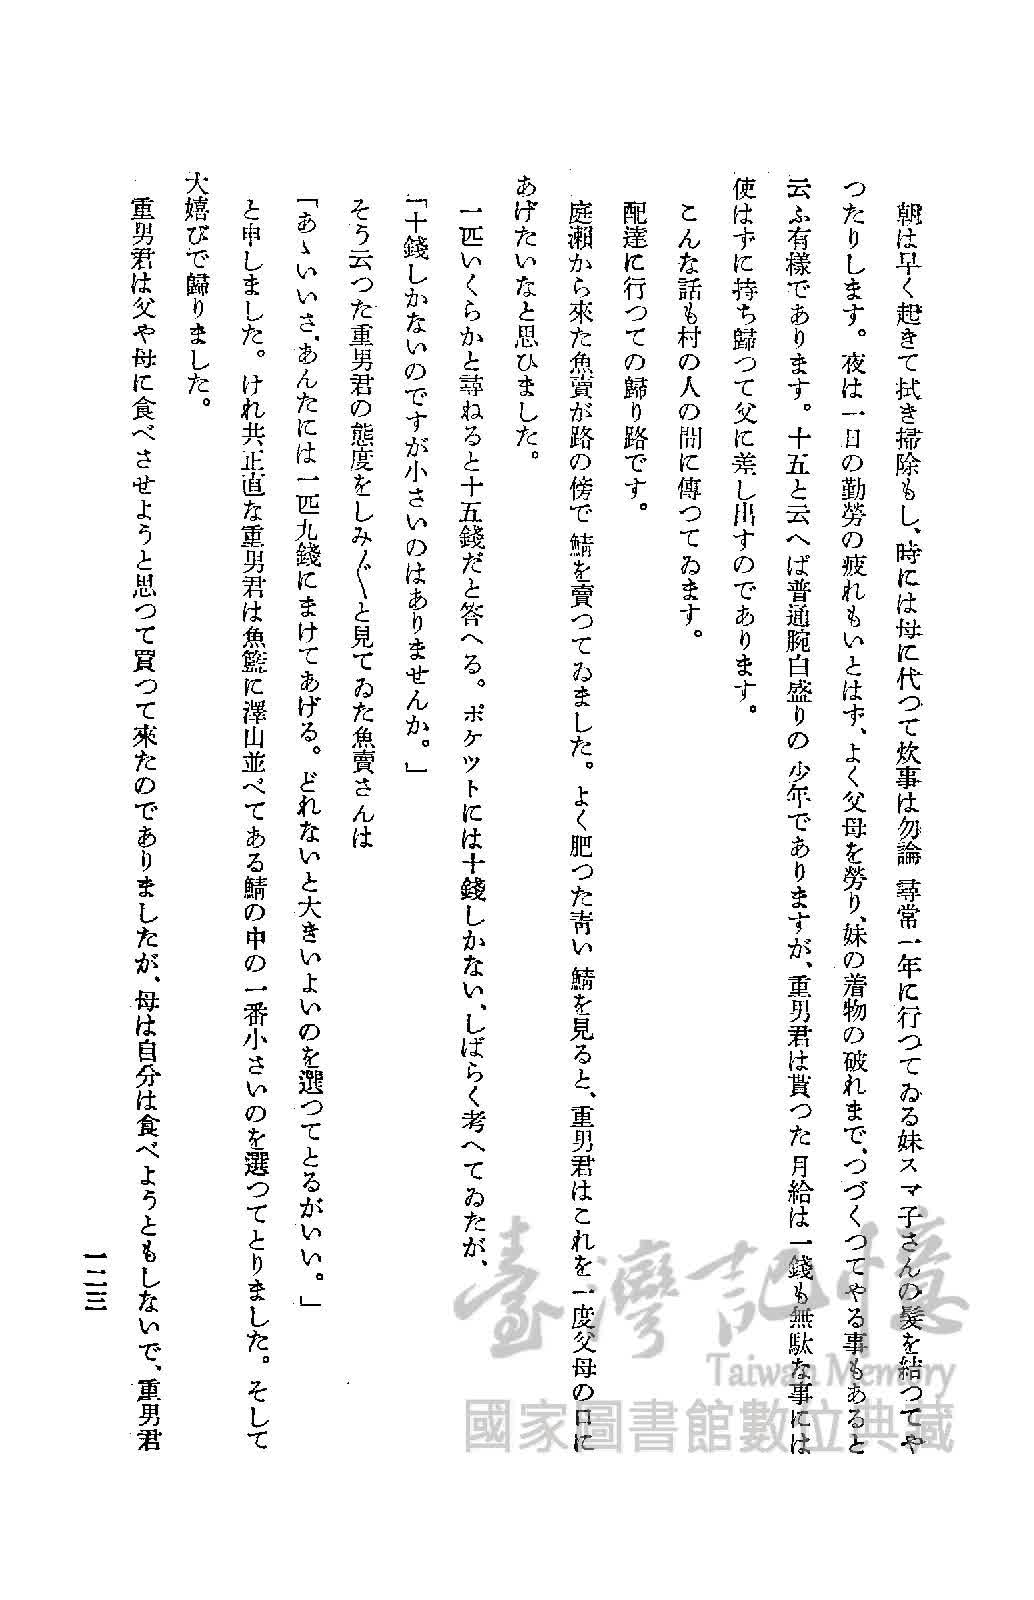 朝は早く起きて拭き掃除もし、時には母に代つて炊事は勿論 尋常一年に行つてゐる妹スマ子さんの髮を結つてや
つたりします。夜は一日の勤勞の疲れもいとはず、よく父母を勞り、妹の着物の破れまで、つづくつてやる事もあると
云ふ有樣であります。十五と云へば普通腕白盛りの 少年でありますが、重男君は貰つた 月給は一錢も無駄な事には
使はずに持ち歸つて父に差し出すのであります。
こんな話も村の人の間に傳つてゐます。
配達に行つての歸り路です。
庭瀨から來た魚賣が路の傍で 鯖を賣つてゐました。よく肥つた靑い 鯖を見ると、重男君はこれを一度父母の口に
あげたいなと思ひました。
一匹いくらかと尋ねると十五錢だと答へる。ポケツトには十錢しかない、しばらく考へてゐたが、
「十錢しかないのですが小さいのはありませんか。」
そう云つた重男君の態度をしみ〴〵と見てゐた魚賣さんは
「あゝいいさ、あんたには一匹九錢にまけてあげる。どれないと大きいよいのを選つてとるがいい。」
と申しました。けれ共、正直な重男君は魚籃に澤山並べてある鯖の中の一番小さいのを選つてとりました。そして
大嬉びで歸りました。
重男君は父や母に食べさせようと思つて買つて來たのでありましたが、母は自分は食べようともしないで、重男君
一二三
臺灣記憶
Taiwan Memory
國家圖書館數位典藏